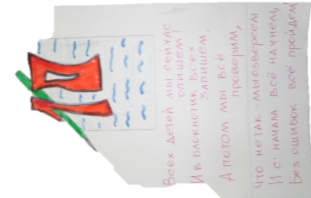 Всех детей мы сейчас
спишем!
И в блокнотик всех
запишем.
А потом мы всё
проверим,
Что не так - мы озвереем
И с начала всё начнём,
Без ошибок всё пройдём